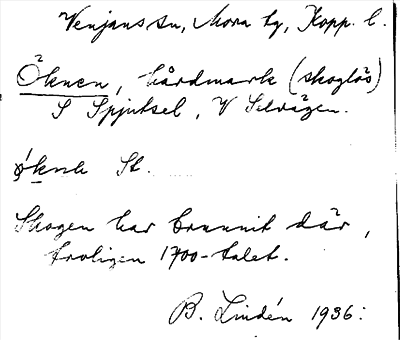 Venjans sn, Mora tg, Kopp. l.
Öknen, hårdmark (skoglös)
S Spjutsel, V Selvägen.
St.
Skogen har brunnit där,
troligen 1700-talet.
B. Lindén 1936.